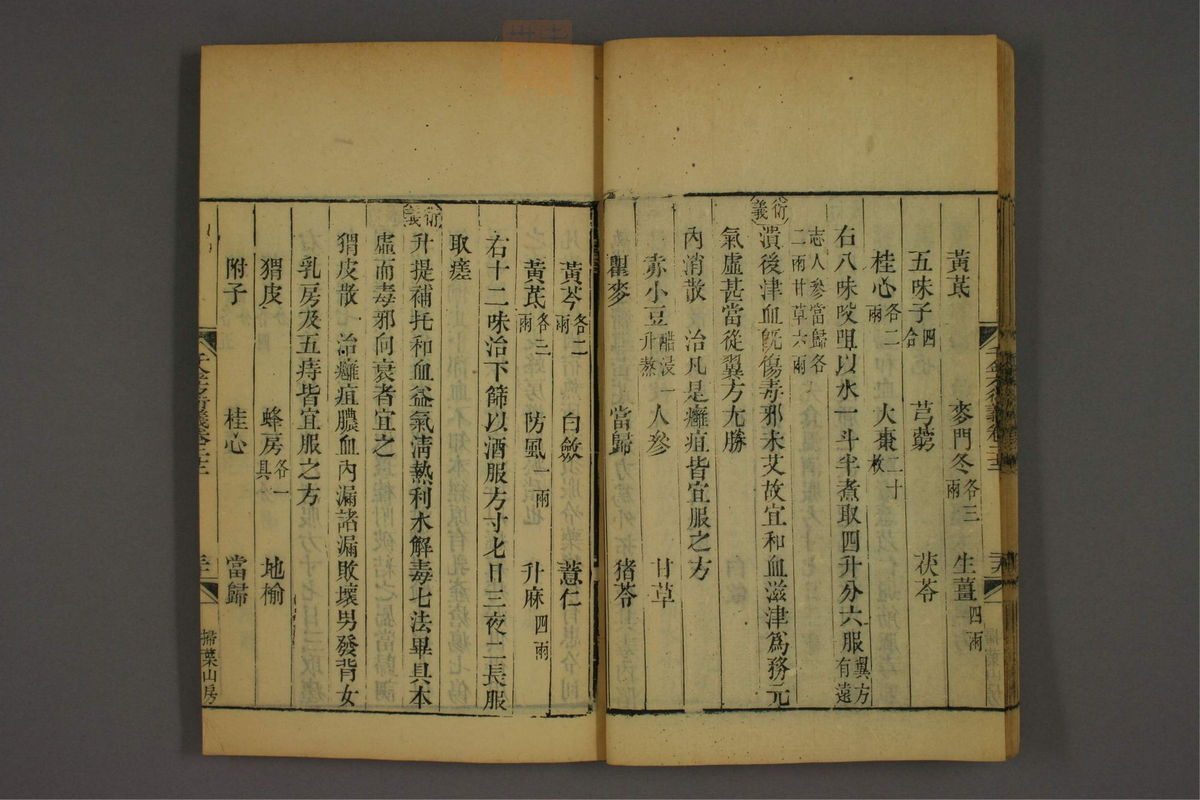 黃芪　麥門冬各三兩　生薑四兩
五味子四合　芎藭　茯苓
桂心各二兩　大棗二十枚
右八味㕮咀以水一斗半煮取四升分六服翼方有遠
志人參當歸各二兩甘草六兩
衍義　潰後津血旣傷毒邪未艾故宜和血滋津爲務元
氣虛甚當從翼方尢勝
內消散　治凡是癰疽皆宜服之方
赤小豆一升醋浸熬　人參　甘草
瞿麥　當歸　猪苓
黃芩各二兩　白斂　薏仁
黃芪各三兩　防風一兩　升麻四兩
右十二味治下篩以酒服方寸匕日三夜二長服
取瘥
衍義　升提補托和血益氣淸熱利水解毒七法畢具本
虛而毒邪向衰者宜之
猬皮散　治癰疽膿血內漏諸漏敗壞男發背女
乳房及五痔皆宜服之方
猬皮　蜂房各一具　地榆
附子　桂心　當歸
掃葉山房